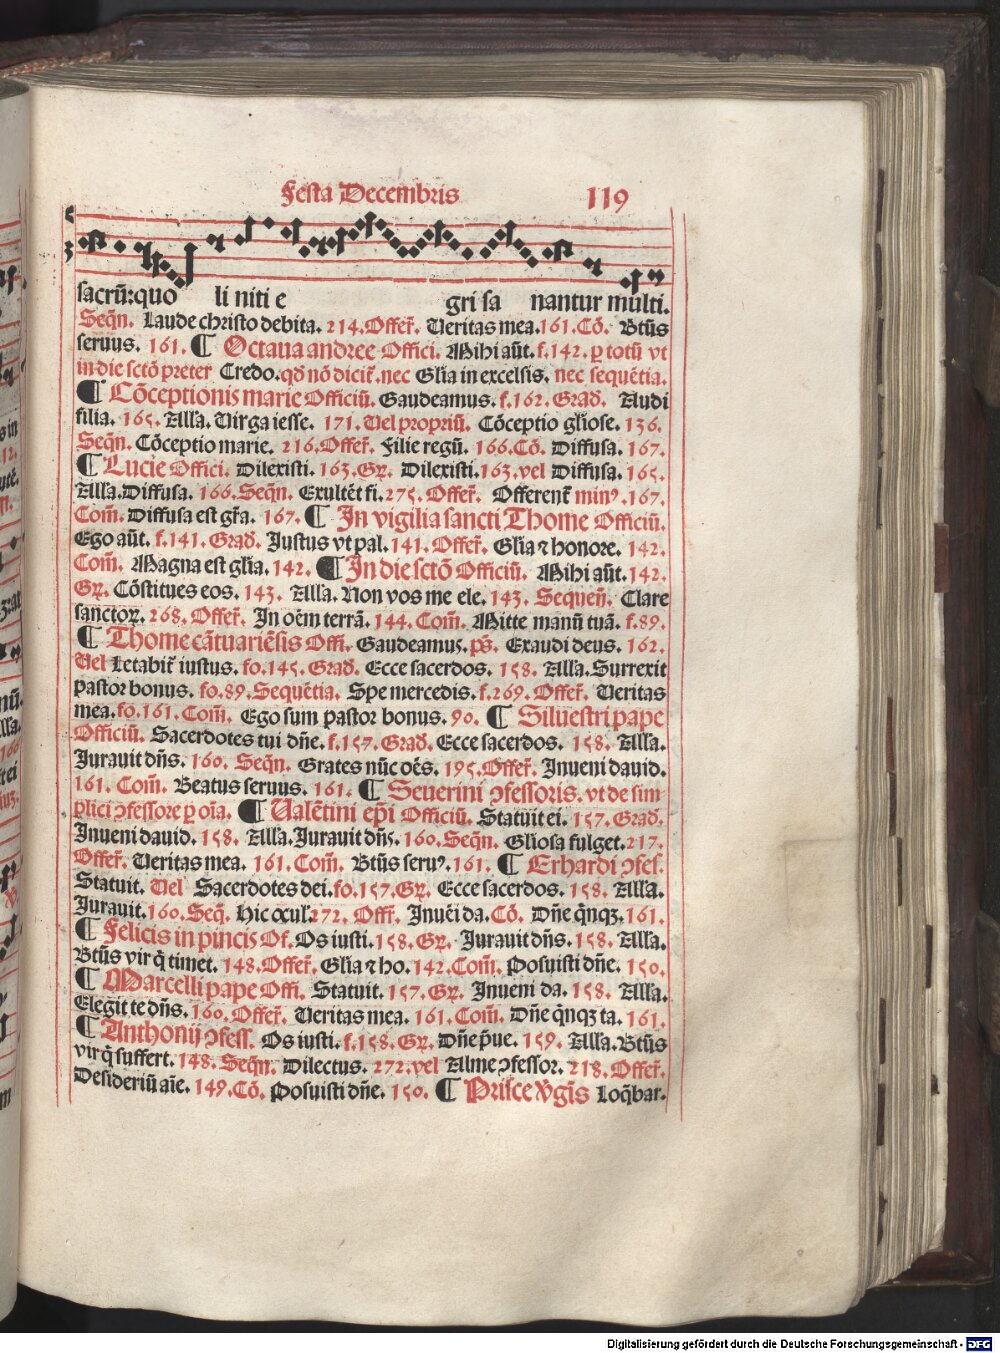 Festa Decembris 119
sacrū:quo li niti e gri sa nantur multi.
Seqñ. Laude christo debita. 214. Offer̄. Ueritas mea. 161. Cō. Btūs
seruus. 161. ¶ Octaua andree Offici. Mihi aūt. f. 142. p totū vt
in die sctō preter Credo. qđ nō dicit̄. nec Glīa in excelsis. nec sequētia.
¶ Cōceptionis marie Officiū. Gaudeamus. f. 162. Grad̄. Audi
filia. 165. Alľa. Uirga iesse. 171. Uel propriū. Cōceptio gl̄iose. 136.
Seqñ. Cōceptio marie. 216. Offer̄. Filie regū. 166. Cō. Diffusa. 167.
¶ Lucie Offici. Dilexisti. 163. Gꝛ. Dilexisti. 163. vel Diffusa. 165.
Alľa. Diffusa. 166. Seqñ. Exultēt fi. 275. Offer̄. Offerent̄ minꝰ. 167.
Com̄. Diffusa est gr̄a. 167. ¶ In vigilia sancti Thome Officiū.
Ego aūt. f. 141. Grad̄. Justus vt pal. 141. Offer̄. Glīa ⁊ honore. 142.
Com̄. Magna est glīa. 142. ¶ In die sctō Officiū. Mihi aūt. 142.
Gꝛ. Cōstitues eos. 143. Alľa. Non vos me ele. 143. Sequen̄. Clare
sanctoꝝ. 268. Offer̄. In oēm terrā. 144. Com̄. Mitte manū tuā. f. 89.
¶ Thome cātuariēsis Offi. Gaudeamus. ps̄. Exaudi deus. 162.
Uel Letabit̄ iustus. fo. 145. Grad̄. Ecce sacerdos. 158. Alľa. Surrexit
pastor bonus. fo. 89. Sequētia. Spe mercedis. f. 269. Offer̄. Ueritas
mea. fo. 161. Com̄. Ego sum pastor bonus. 90. ¶ Siluestri pape
Officiū. Sacerdotes tui dn̄e. f. 157. Grad̄. Ecce sacerdos. 158. Alľa.
Jurauit dn̄s. 160. Seqñ. Grates nūc oēs. 195. Offer̄. Inueni dauid.
161. Com̄. Beatus seruus. 161. ¶ Seuerini ꝯfessoris. vt de sim
plici ꝯfessore ꝑ oīa. ¶ Ualētini ep̄i Officiū. Statuit ei. 157. Grad̄.
Inueni dauid. 158. Alľa. Jurauit dn̄s. 160. Seqñ. Gl̄iosa fulget. 217.
Offer̄. Ueritas mea. 161. Com̄. Btūs seruꝰ. 161. ¶ Erhardi ꝯfes.
Statuit. Uel Sacerdotes dei. fo. 157. Gꝛ. Ecce sacerdos. 158. Alľa.
Jurauit. 160. Seq̄. Hic ocul. 272. Offr̄. Inuēi da. Cō. Dn̄e q̄nqꝫ. 161.
¶ Felicis in pincis Of. Os iusti. 158. Gꝛ. Jurauit dn̄s. 158. Alľa.
Btūs vir q̄ timet. 148. Offer̄. Glīa ⁊ ho. 142. Com̄. Posuisti dn̄e. 150.
¶ Marcelli pape Offi. Statuit. 157. Gꝛ. Inueni da. 158. Alľa.
Elegit te dn̄s. 160. Offer̄. Ueritas mea. 161. Com̄. Dn̄e q̄nqꝫ ta. 161.
¶ Anthonij ꝯfess. Os iusti. f. 158. Gꝛ. Dn̄e p̄ue. 159. Alľa. Btūs
vir q̄ suffert. 148. Seqñ. Dilectus. 272. vel Alme ꝯfessor. 218. Offer̄.
Desideriū aīe. 149. Cō. Posuisti dn̄e. 150. ¶ Prisce v̄gīs Loq̄bar.
Digitalisierung gefördert durch die Deutsche Forschungsgemeinschaft - DFG